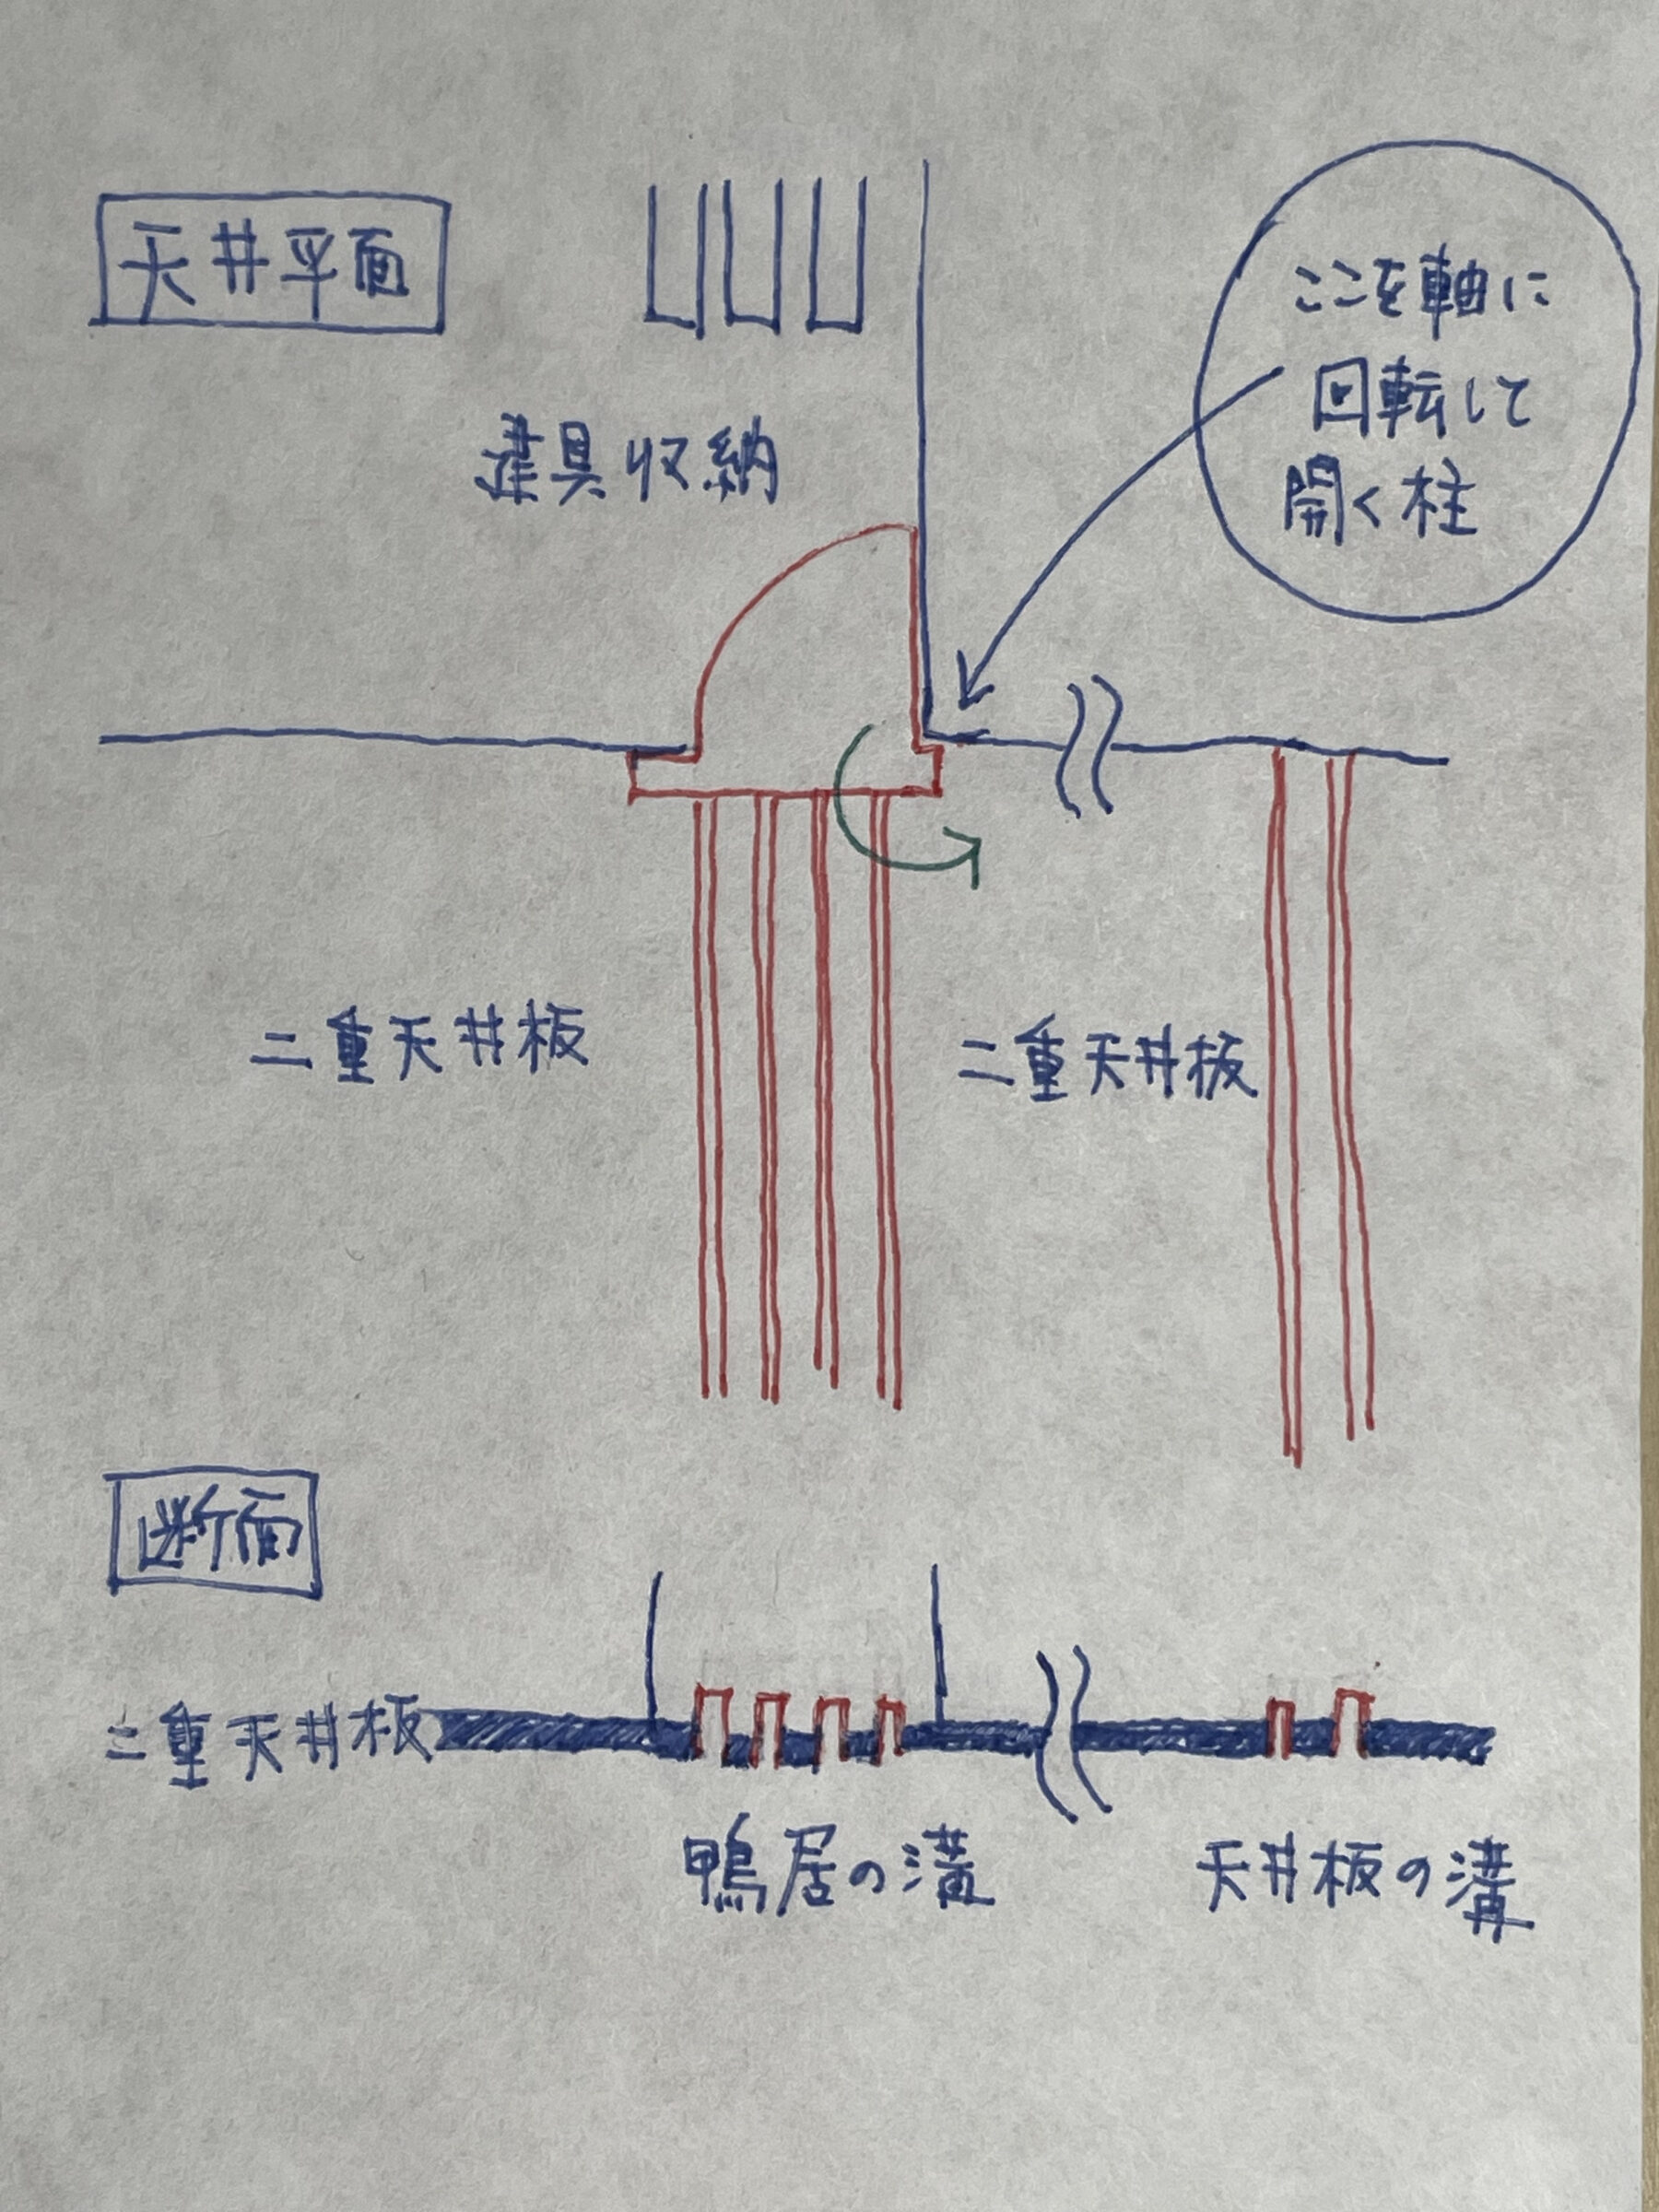 天井平面
ここを軸に
回転して
開く柱
建具収納
二重天井板
二重天井板
断面
二重天井板
鴨居の溝
天井板の溝